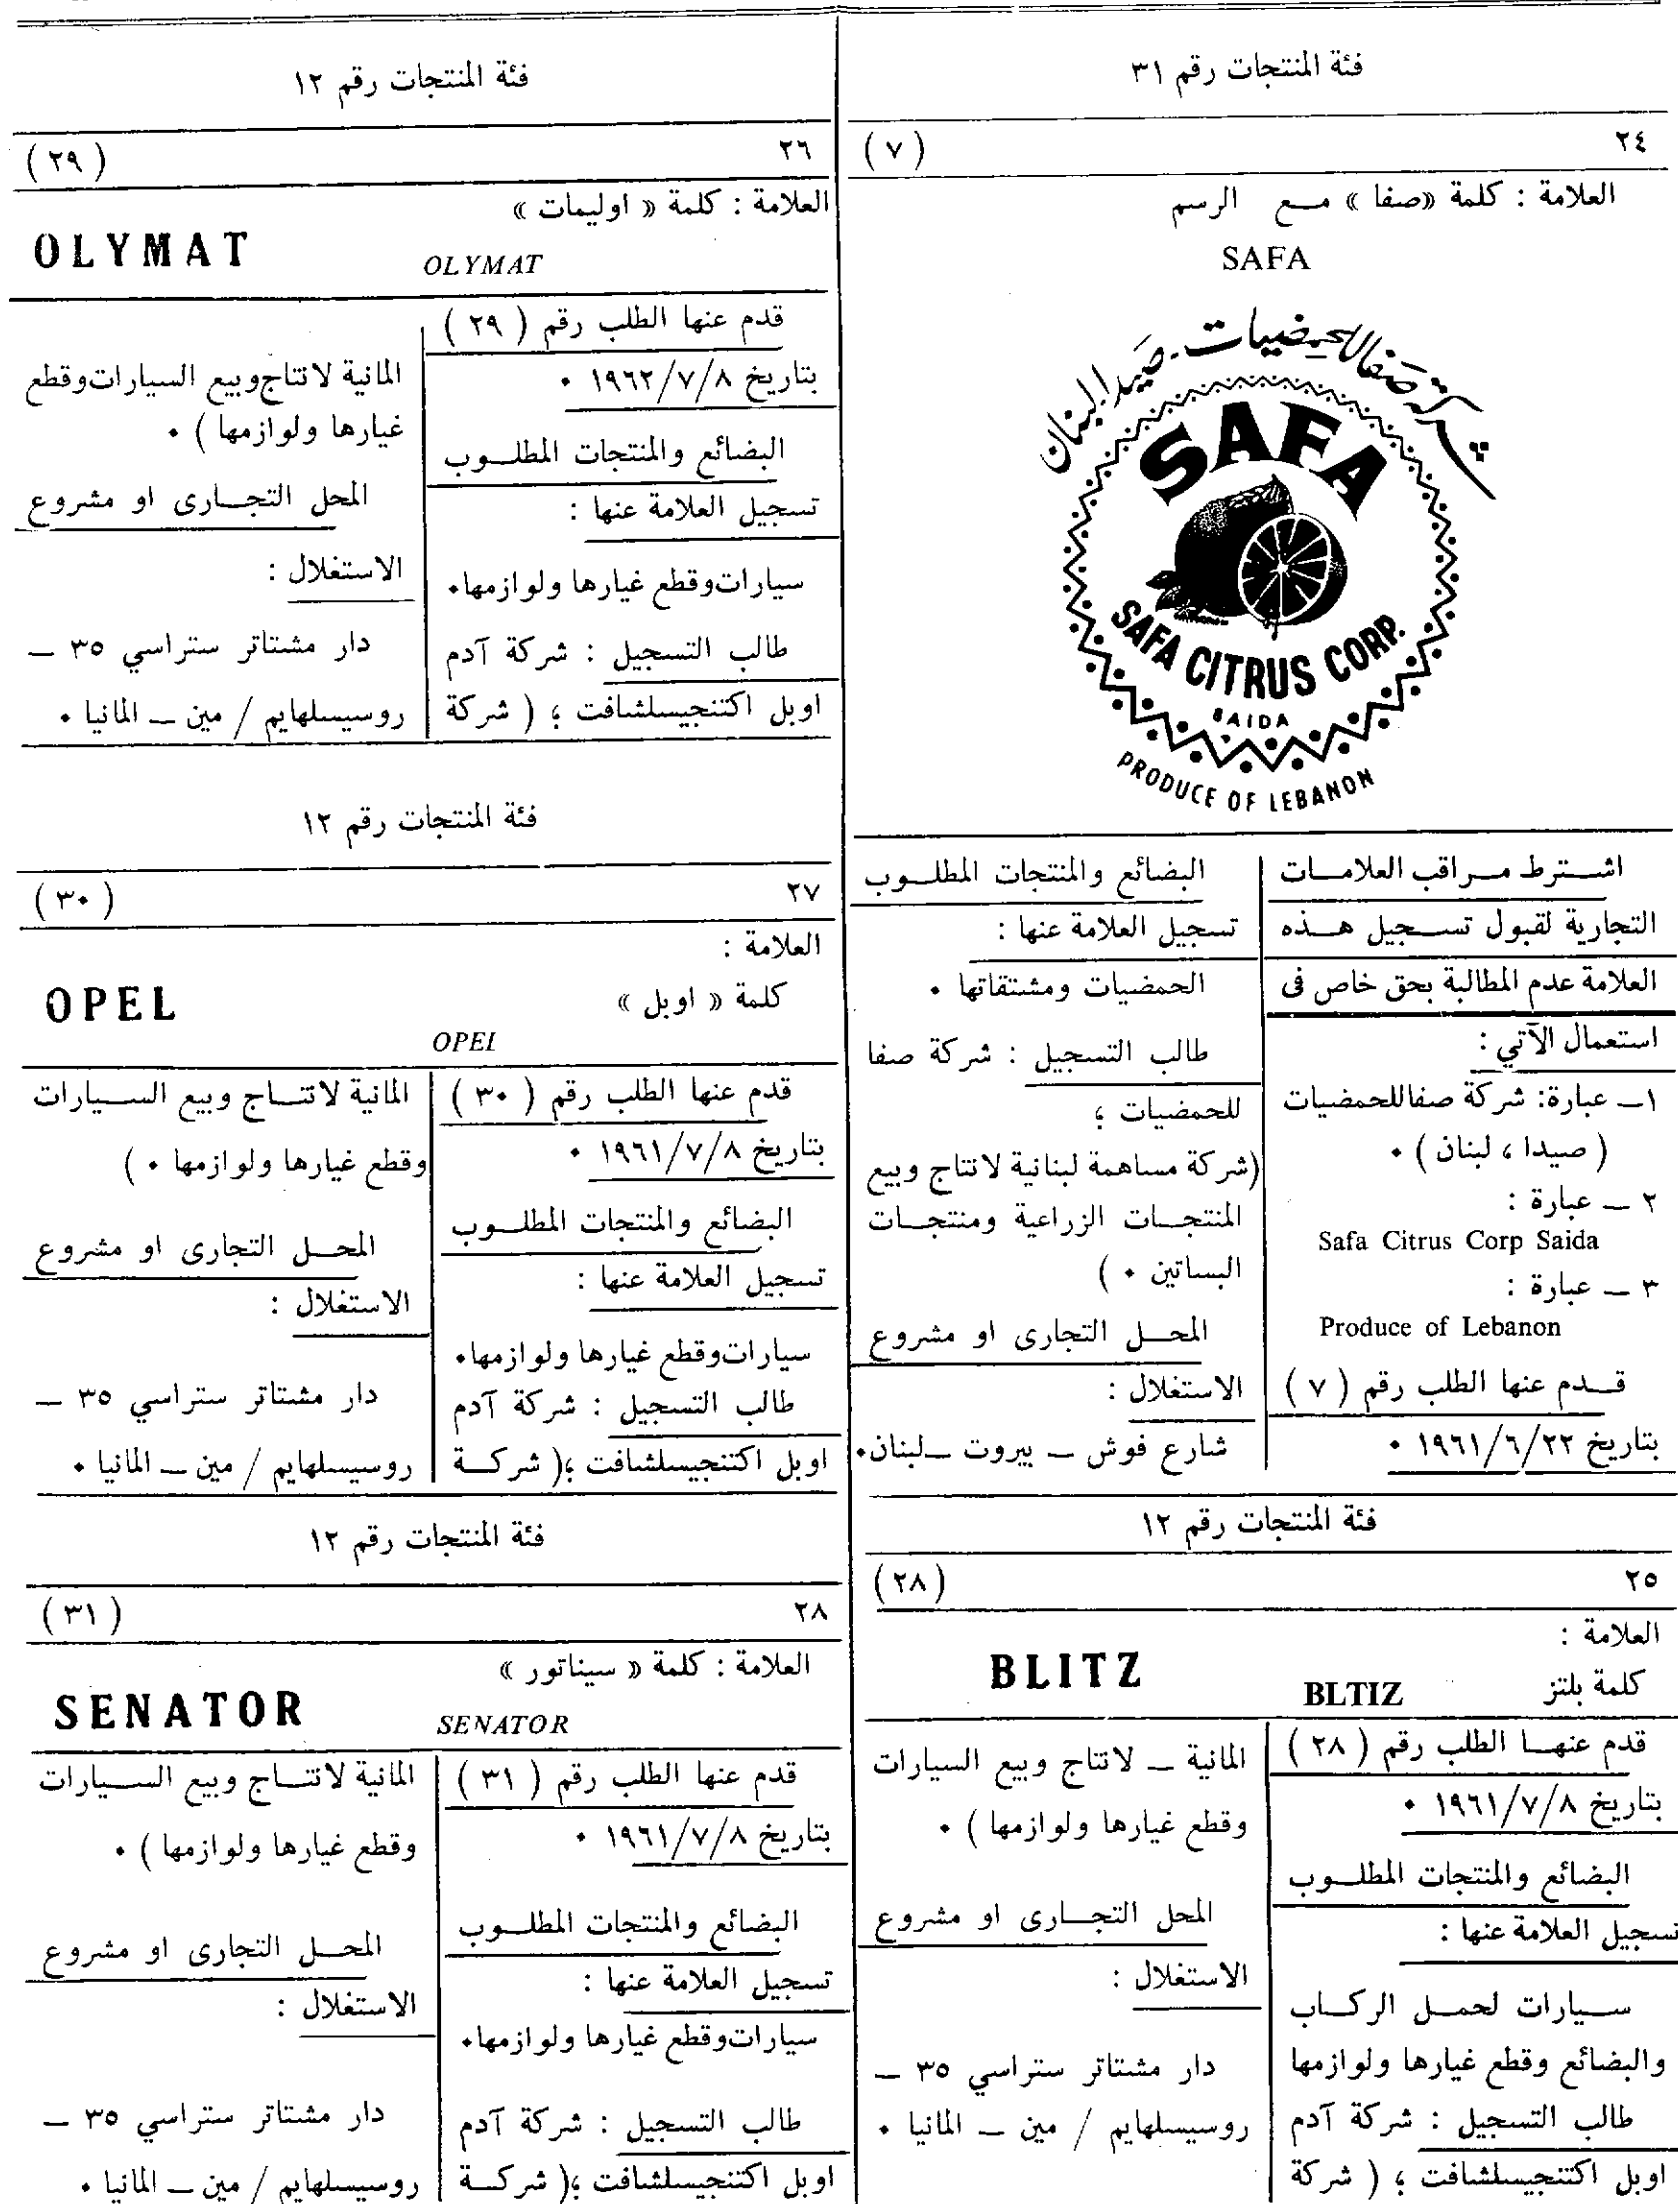 فئة المنتجات رقم ٣١
٢٤ ( ٧ )
العلامة : كلمة «صفا» مـع الرسم
SAFA
شركة صفا للحمضيات - صيدا لبنان
SAFA
SAFA CITRUS CORP.
SAIDA
PRODUCE OF LEBANON
اشـترط مـراقب العلامـات
التجارية لقبول تسـجيل هـذه
العلامة عدم المطالبة بحق خاص فى
استعمال الآتي :
١ـ عبارة: شركة صفاللحمضيات
( صيدا ، لبنان ) ٠
٢ ـ عبارة :
Safa Citrus Corp Saida
٣ ـ عبارة :
Produce of Lebanon
قـدم عنها الطلب رقم ( ٧ )
بتاريخ ١٩٦١/٦/٢٢ ٠
البضائع والمنتجات المطلـوب
تسجيل العلامة عنها :
الحمضيات ومشتقاتها ٠
طالب التسجيل : شركة صفا
للحمضيات ؛
(شركة مساهمة لبنانية لانتاج وبيع
المنتجـات الزراعية ومنتجـات
البساتين ٠ )
المحـل التجارى او مشروع
الاستغلال :
شارع فوش ـ بيروت ـ لبنان٠
فئة المنتجات رقم ١٢
٢٥ ( ٢٨ )
العلامة :
كلمة بلتز BLTIZ BLITZ
قدم عنهـا الطلب رقم ( ٢٨ )
بتاريخ ١٩٦١/٧/٨ ٠
البضائع والمنتجات المطلـوب
تسجيل العلامة عنها :
سـيارات لحمـل الركـاب
والبضائع وقطع غيارها ولوازمها
طالب التسجيل : شركة آدم
اوبل اكتنجيسلشافت ؛ ( شركة
المانية ـ لانتاج وبيع السيارات
وقطع غيارها ولوازمها ) ٠
المحل التجـارى او مشروع
الاستغلال :
دار مشتاتر ستراسي ٣٥ ـ
روسيسلهايم / مين ـ المانيا ٠
فئة المنتجات رقم ١٢
٢٦ ( ٢٩ )
العلامة : كلمة « اوليمات »
OLYMAT OLYMAT
قدم عنها الطلب رقم ( ٢٩ )
بتاريخ ١٩٦٢/٧/٨ ٠
البضائع والمنتجات المطلـوب
تسجيل العلامة عنها :
سيارات وقطع غيارها ولوازمها٠
طالب التسجيل : شركة آدم
اوبل اكتنجيسلشافت ؛ ( شركة
المانية لانتاج وبيع السيارات وقطع
غيارها ولوازمها ) ٠
المحل التجـارى او مشروع
الاستغلال :
دار مشتاتر ستراسي ٣٥ ـ
روسيسلهايم / مين ـ المانيا ٠
فئة المنتجات رقم ١٢
٢٧ ( ٣٠ )
العلامة :
كلمة « اوبل »
OPEL OPEL
قدم عنها الطلب رقم ( ٣٠ )
بتاريخ ١٩٦١/٧/٨ ٠
البضائع والمنتجات المطلـوب
تسجيل العلامة عنها :
سيارات وقطع غيارها ولوازمها٠
طالب التسجيل : شركة آدم
اوبل اكتنجيسلشافت ؛( شركـة
المانية لانتـاج وبيع السـيارات
وقطع غيارها ولوازمها ٠ )
المحـل التجارى او مشروع
الاستغلال :
دار مشتاتر ستراسي ٣٥ ـ
روسيسلهايم / مين ـ المانيا ٠
فئة المنتجات رقم ١٢
٢٨ ( ٣١ )
العلامة : كلمة « سيناتور »
SENATOR SENATOR
قدم عنها الطلب رقم ( ٣١ )
بتاريخ ١٩٦١/٧/٨ ٠
البضائع والمنتجات المطلـوب
تسجيل العلامة عنها :
سيارات وقطع غيارها ولوازمها٠
طالب التسجيل : شركة آدم
اوبل اكتنجيسلشافت ؛( شركـة
المانية لانتـاج وبيع السـيارات
وقطع غيارها ولوازمها ) ٠
المحـل التجارى او مشروع
الاستغلال :
دار مشتاتر ستراسي ٣٥ ـ
روسيسلهايم / مين ـ المانيا ٠